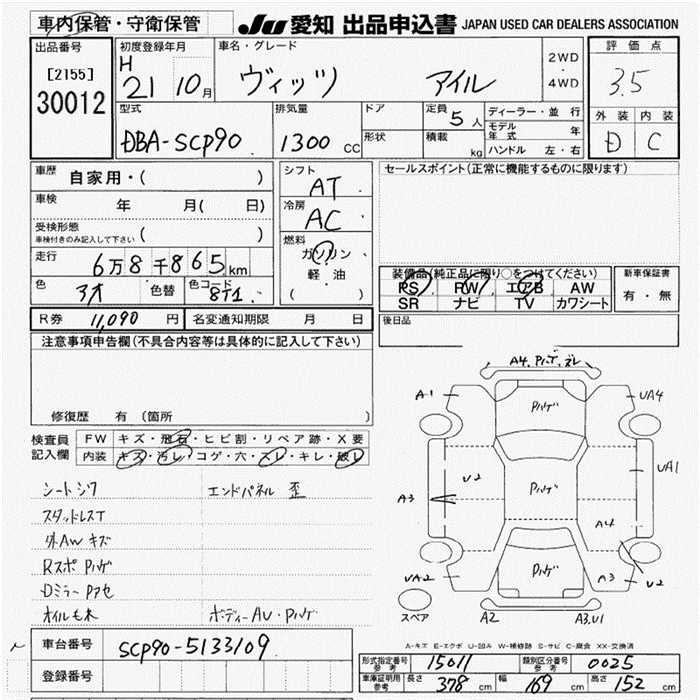 車内保管・守衛保管
JU 愛知 出品申込書 JAPAN USED CAR DEALERS ASSOCIATION
出品番号
[2155]
30012
初度登録年月
H
21 10月
車名・グレード
ヴィッツ アイル
2WD
・
4WD
評価点
3.5
外装 内装
D C
型式
DBA-SCP90
排気量
1300 CC
ドア
形状
定員 5人
積載 kg
ディーラー・並行
モデル年式 年
ハンドル 左・右
車歴 自家用・( )
車検 年 月( 日)
受検形態
車検付きのみ記入して下さい ( )
走行 6万8千865km
色 色替 色コード 8T1
シフト
AT
冷房
AC
燃料
ガソリン
軽油
( )
セールスポイント(正常に機能するものに限ります)
装備品(純正品に限り○をつけてください)
PS PW エアB AW
SR ナビ TV カワシート
新車保証書
有・無
R券 11,090 円 名変通知期限 月 日
後日品
注意事項申告欄(不具合内容等は具体的に記入して下さい)
修復歴 有 (箇所
検査員
記入欄
FW キズ・飛石・ヒビ割・リペア跡・X要
内装 キズ・汚レ・コゲ・穴・スレ・キレ・破レ
シートシワ エンドパネル 歪
スタッドレスT
外AW キズ
Rスポ Pハゲ
Dミラー Pアセ
ボディーAU・Pハゲ
A4.Pハゲ.ズレ
A1 Pハゲ UA4
U2 Pハゲ UA1
A3 A4
UA2 Pハゲ A3 U2
スペア A2 A3,U1
A-キズ E-エクボ U-凹み W-補修跡 S-サビ C-腐食 XX-交換済
車台番号 SCP90-5133109
登録番号
形式指定番号 参考 15011 類別区分番号 参考 0025
車庫証明用 参考 長さ 378 cm 幅 169 cm 高さ 152 cm